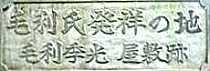 毛利氏発祥の地
毛利季光 屋敷跡